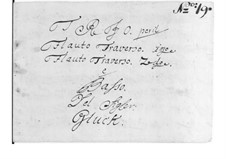 No 19
TRIO. per il
Flauto Traverso. 1mo
Flauto Traverso. 2do
è
Basso.
Del Sigr.
Gluck.